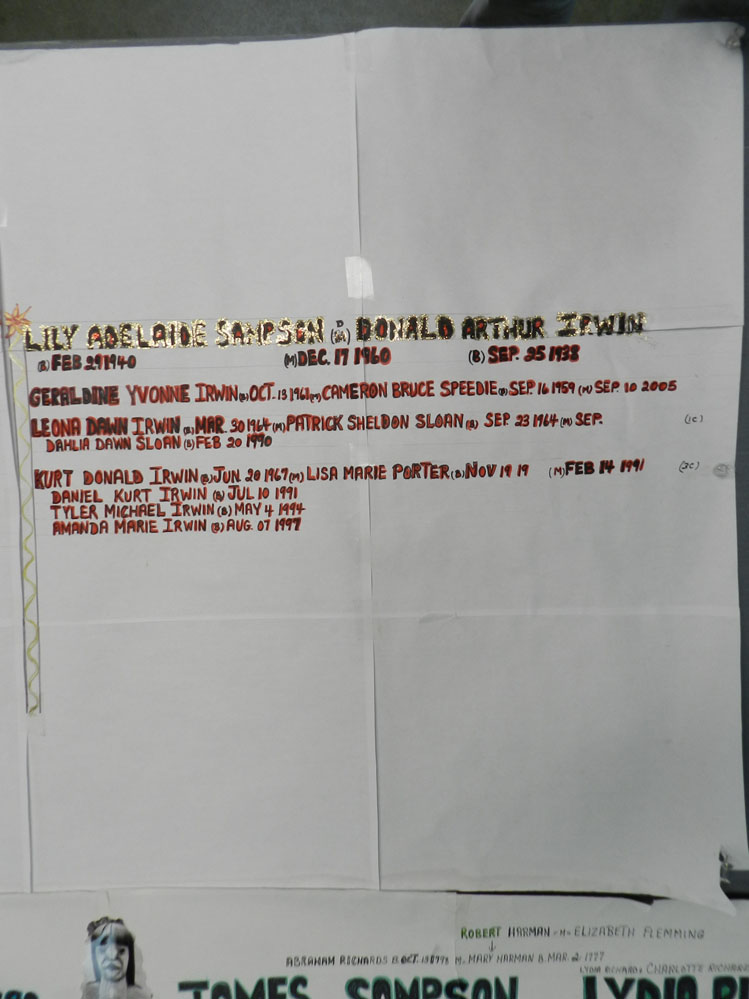 LILY ADELAIDE SAMPSON D (M) DONALD ARTHUR IRWIN
(B) FEB 29 1940 (M) DEC. 17 1960 (B) SEP. 25 1938
GERALDINE YVONNE IRWIN (B) OCT. 13 1961 (M) CAMERON BRUCE SPEEDIE (B) SEP. 16 1959 (M) SEP. 10 2005
LEONA DAWN IRWIN (B) MAR. 30 1964 (M) PATRICK SHELDON SLOAN (B) SEP 23 1964 (M) SEP. (1C)
DAHLIA DAWN SLOAN (B) FEB 20 1990
KURT DONALD IRWIN (B) JUN. 20 1967 (M) LISA MARIE PORTER (B) NOV 19 19 (M) FEB 14 1991 (3C)
DANIEL KURT IRWIN (B) JUL 10 1991
TYLER MICHAEL IRWIN (B) MAY 4 1994
AMANDA MARIE IRWIN (B) AUG. 07 1997
ROBERT HARMAN - M - ELIZABETH FLEMMING
ABRAHAM RICHARDS B. OCT. M - MARY HARMAN B. MAR. 2 1777
LYDIA RICHARDS CHARLOTTE
JAMES SAMPSON LYDIA